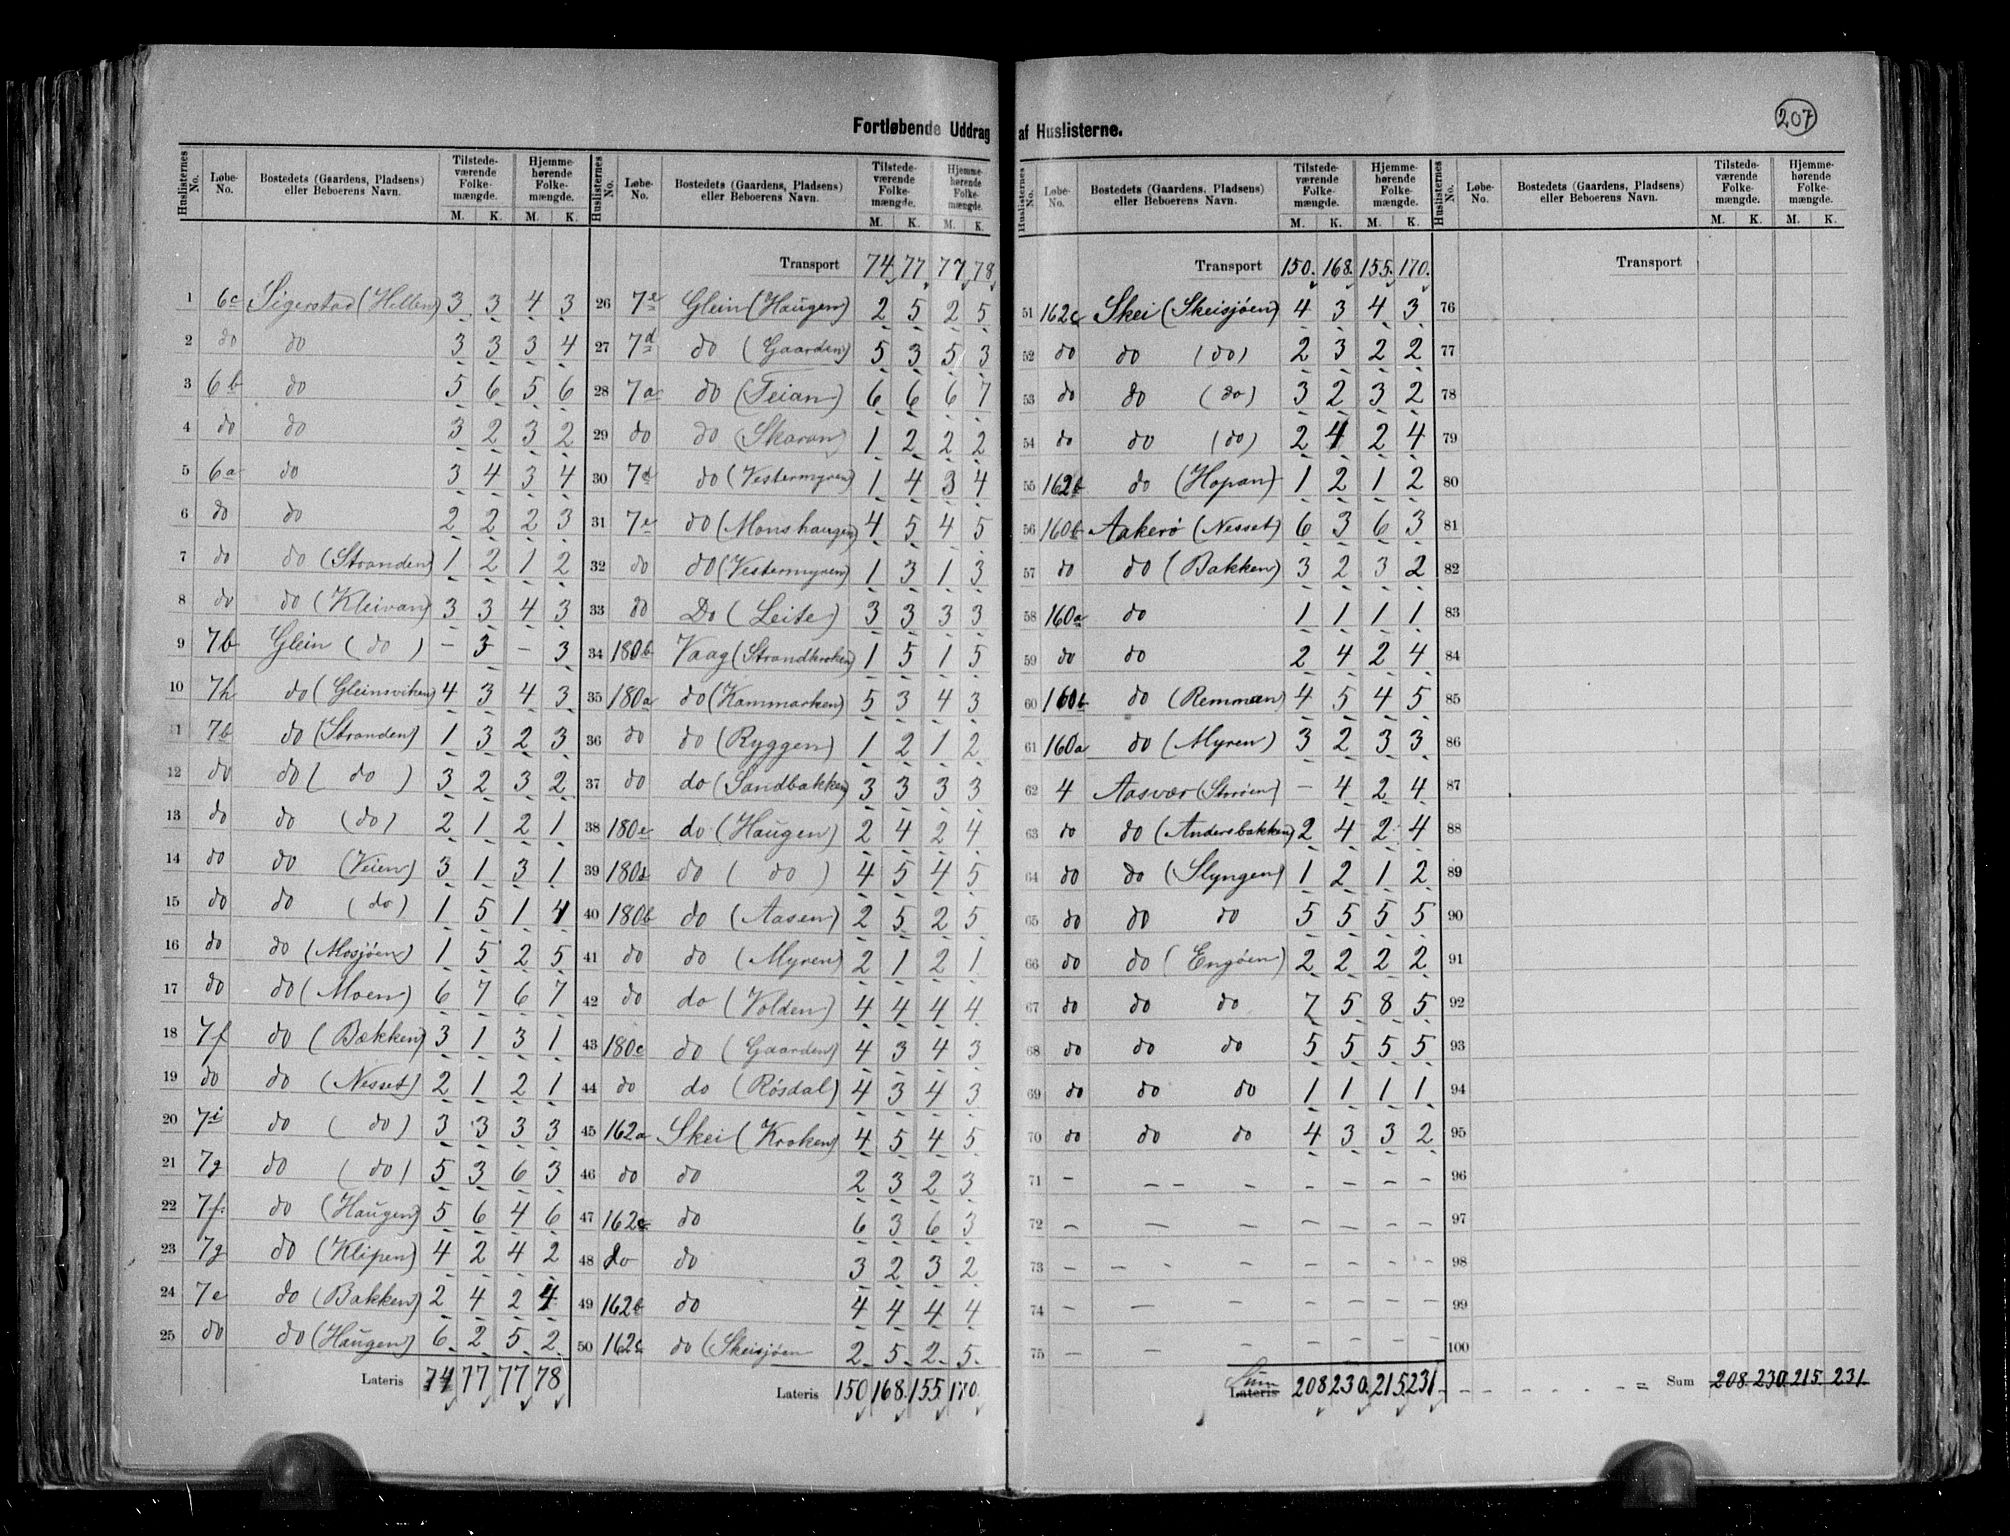 207
Fortløbende Uddrag af Huslisterne.
Huslisternes No. Løbe-No. Bostedets (Gaardens, Pladsens) eller Beboerens Navn. Tilstedeværende Folkemængde. M. K. Hjemmehørende Folkemængde. M. K.
1 6c Sigerstad (Hellen) 3 3 4 3
2 do do 3 3 3 4
3 6b do 5 6 5 6
4 do do 3 2 3 2
5 6a do 3 4 3 4
6 do do 2 2 2 3
7 do do (Stranden) 1 2 1 2
8 do do (Kleivan) 3 3 4 3
9 7b Glein (do) - 3 - 3
10 7h do (Gleinsviken) 4 3 4 3
11 7b do (Stranden) 1 3 2 3
12 do do (do) 3 2 3 2
13 do do (do) 2 1 2 1
14 do do (Veien) 3 1 3 1
15 do do (do) 1 5 1 4
16 do do (Mosjøen) 1 5 2 5
17 do do (Moen) 6 7 6 7
18 7f do (Bækken) 3 1 3 1
19 do do (Nesset) 2 1 2 1
20 7i do (do) 3 3 3 3
21 7g do (do) 5 3 6 3
22 7f do (Haugen) 5 6 4 6
23 7g do (Klipen) 4 2 4 2
24 7e do (Bakken) 2 4 2 4
25 do do (Haugen) 6 2 5 2
Lateris 74 77 77 78
Huslisternes No. Løbe-No. Bostedets (Gaardens, Pladsens) eller Beboerens Navn. Tilstedeværende Folkemængde. M. K. Hjemmehørende Folkemængde. M. K.
Transport 74 77 77 78
26 7e Glein (Haugen) 2 5 2 5
27 7d do (Gaarden) 5 3 5 3
28 7a do (Teian) 6 6 6 7
29 do do (Skaran) 1 2 2 2
30 7d do (Vestermyren) 1 4 3 4
31 7e do (Monshaugen) 4 5 4 5
32 do do (Vestermyren) 1 3 1 3
33 do Do (Leite) 3 3 3 3
34 180b Vaag (Strandkroken) 1 5 1 5
35 180a do (Kammarken) 5 3 4 3
36 do do (Ryggen) 1 2 1 2
37 do do (Sandbakken) 3 3 3 3
38 180e do (Haugen) 2 4 2 4
39 180d do (do) 4 5 4 5
40 180b do (Aasen) 2 5 2 5
41 do do (Myren) 2 1 2 1
42 do do (Volden) 4 4 4 4
43 180c do (Gaarden) 4 3 4 3
44 do do (Røsdal) 4 3 4 3
45 162a Skei (Kroken) 4 5 4 5
46 do do 2 3 2 3
47 162c do 6 3 6 3
48 do do 3 2 3 2
49 162b do 4 4 4 4
50 162c do (Skeisjøen 2 5 2 5
Lateris 150 168 155 170
Huslisternes No. Løbe-No. Bostedets (Gaardens, Pladsens) eller Beboerens Navn. Tilstedeværende Folkemængde. M. K. Hjemmehørende Folkemængde. M. K.
Transport 150. 168. 155. 170.
51 162c Skei (Skeisjøen) 4 3 4 3
52 do do (do) 2 3 2 2
53 do do (do) 3 2 3 2
54 do do (do) 2 4 2 4
55 162b do (Hopan) 1 2 1 2
56 160b Aakerø (Nesset) 6 3 6 3
57 do do (Bakken) 3 2 3 2
58 160a do 1 1 1 1
59 do do 2 4 2 4
60 160b do (Remman) 4 5 4 5
61 160a do (Myren) 3 2 3 3
62 4 Aasvær (Storøen) - 4 2 4
63 do do (Andersbakken) 2 4 2 4
64 do do (Slyngen) 1 2 1 2
65 do do do 5 5 5 5
66 do do (Engøen) 2 2 2 2
67 do do do 7 5 8 5
68 do do do 5 5 5 5
69 do do do 1 1 1 1
70 do do do 4 3 3 2
71 - - - - - - - -
72 - - - - - - -
73 - - - - - - - -
74 - - - - - - -
75 - - - - - - -
Sum Lateris 208 230. 215. 231
Huslisternes No. Løbe-No. Bostedets (Gaardens, Pladsens) eller Beboerens Navn. Tilstedeværende Folkemængde. M. K. Hjemmehørende Folkemængde. M. K.
Transport
76
77
78
79
80
81
82
83
84
85
86
87
88
89
90
91
92
93
94
95
96
97
98
99
100
Sum 208. 230. 215. 231.